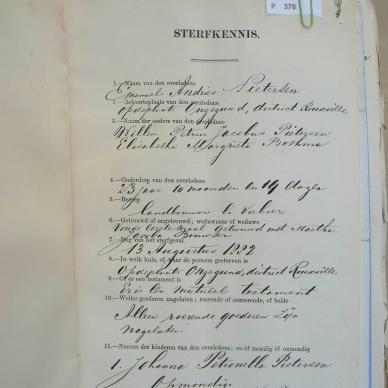 P 378
STERFKENNIS.
1.—Naam van den overledene
Emanuel Andries Pietersen
2.—Geboorteplaats van den overledene
Opdeplaats Ongegund, district Rouxville
3.—Naam der ouders van den overledene
Willem Petrus Jacobus Pietersen
Elizabetha Margrieta Boshma
4.—Ouderdom van den overledene
23 jaar 10 maanden en 19 dagen
5.—Beroep
Landbouwer &
6.—Getrouwd of ongetrouwd; weduwnaar of weduwe
Getrouwd met Martha
Jacoba
7.—Dag van het sterfgeval
13 Augustus 1892
8.—In welk huis, of waar de persoon gestorven is
Opdeplaats Ongegund, district Rouxville
9.—Of er een testament is
Er is een mutueel testament
10.—Welke goederen nagelaten; roerende of onroerende, of beide
Alleen roerende goederen zijn
nagelaten.
11.—Namen der kinderen van den overledene; en of mondig of onmondig
1. Johanna Petronella Pietersen
Onmondig